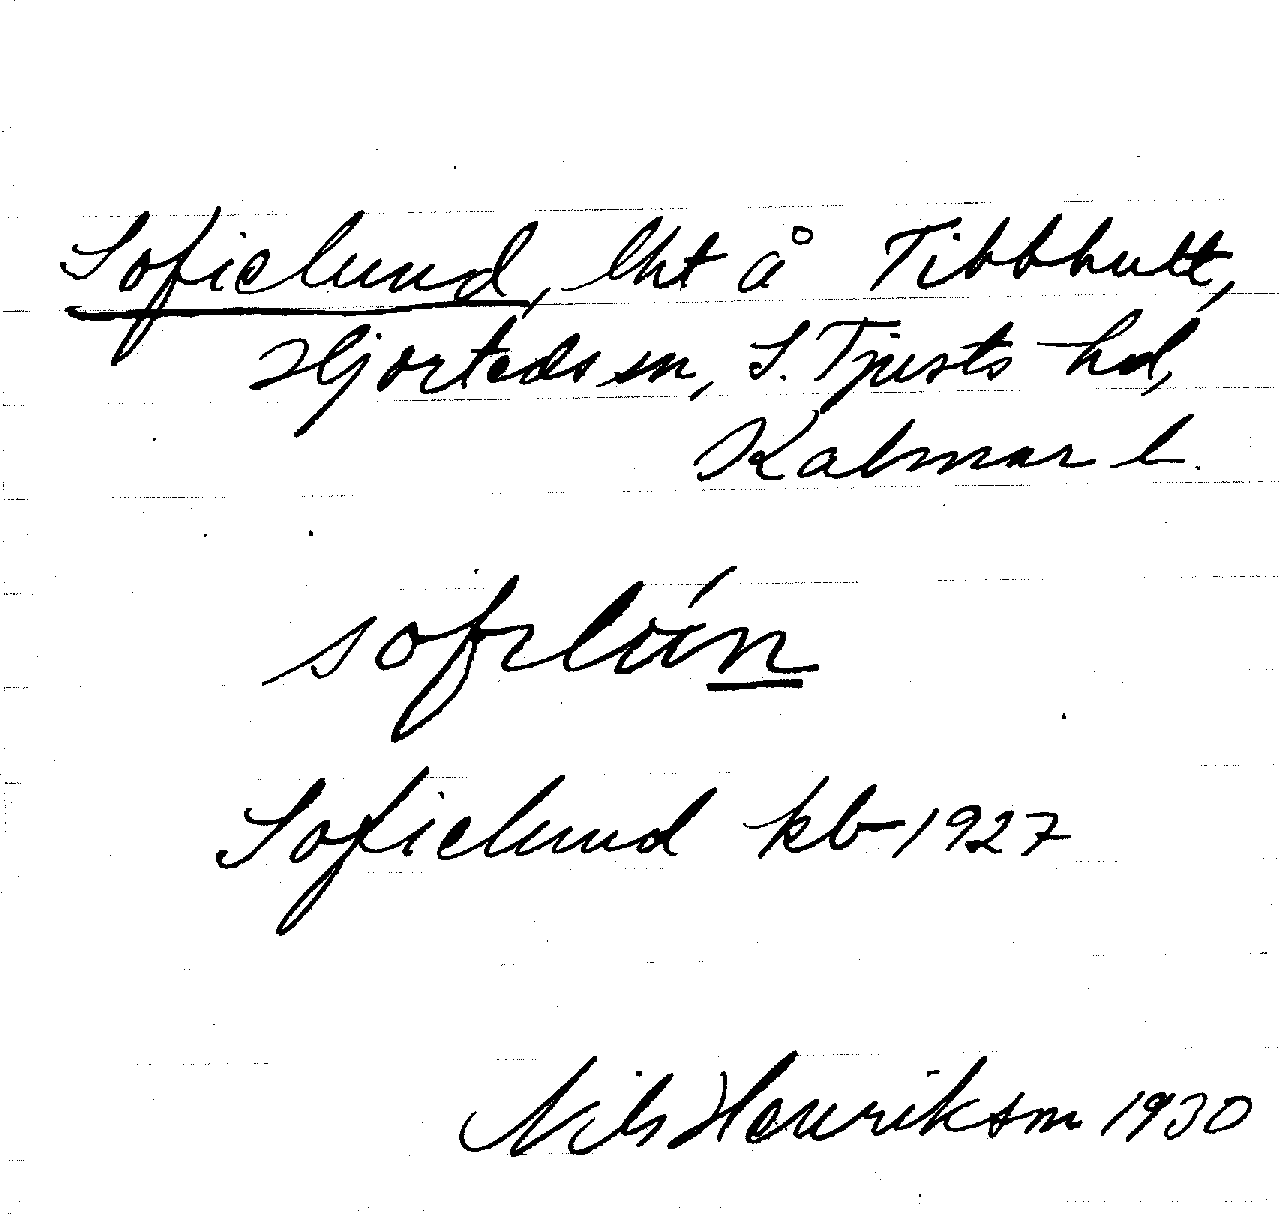 Sofielund, lht å Tibbhult,
Hjorteds sn, S. Tjusts hd,
Kalmar l.
sofilún
Sofielund kb 1927
Nils Henrikson 1930